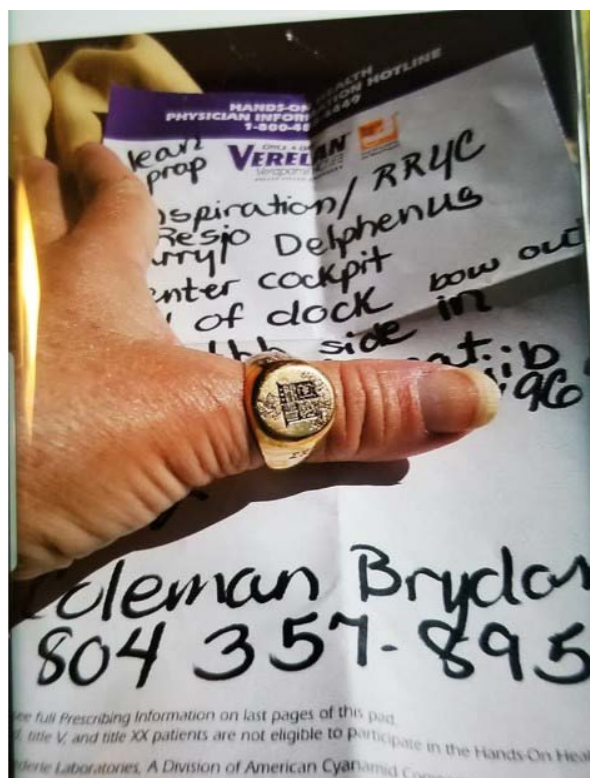 HANDS-ON HEALTH
PHYSICIAN INFOR TION HOTLINE
1-800-48 4449
lean
prap
VEREL AN
Verapam
spiration/ RRYC
Resjo
rryl Delphenus
enter cockpit
of dock bow out
side in
96
oleman Brydo
804 357-895
see full Prescribing Information on last pages of this pad.
title V, and title XX patients are not eligible to participate in the Hands-On Heal
ederle Laboratories, A Division of American Cyanamid Com